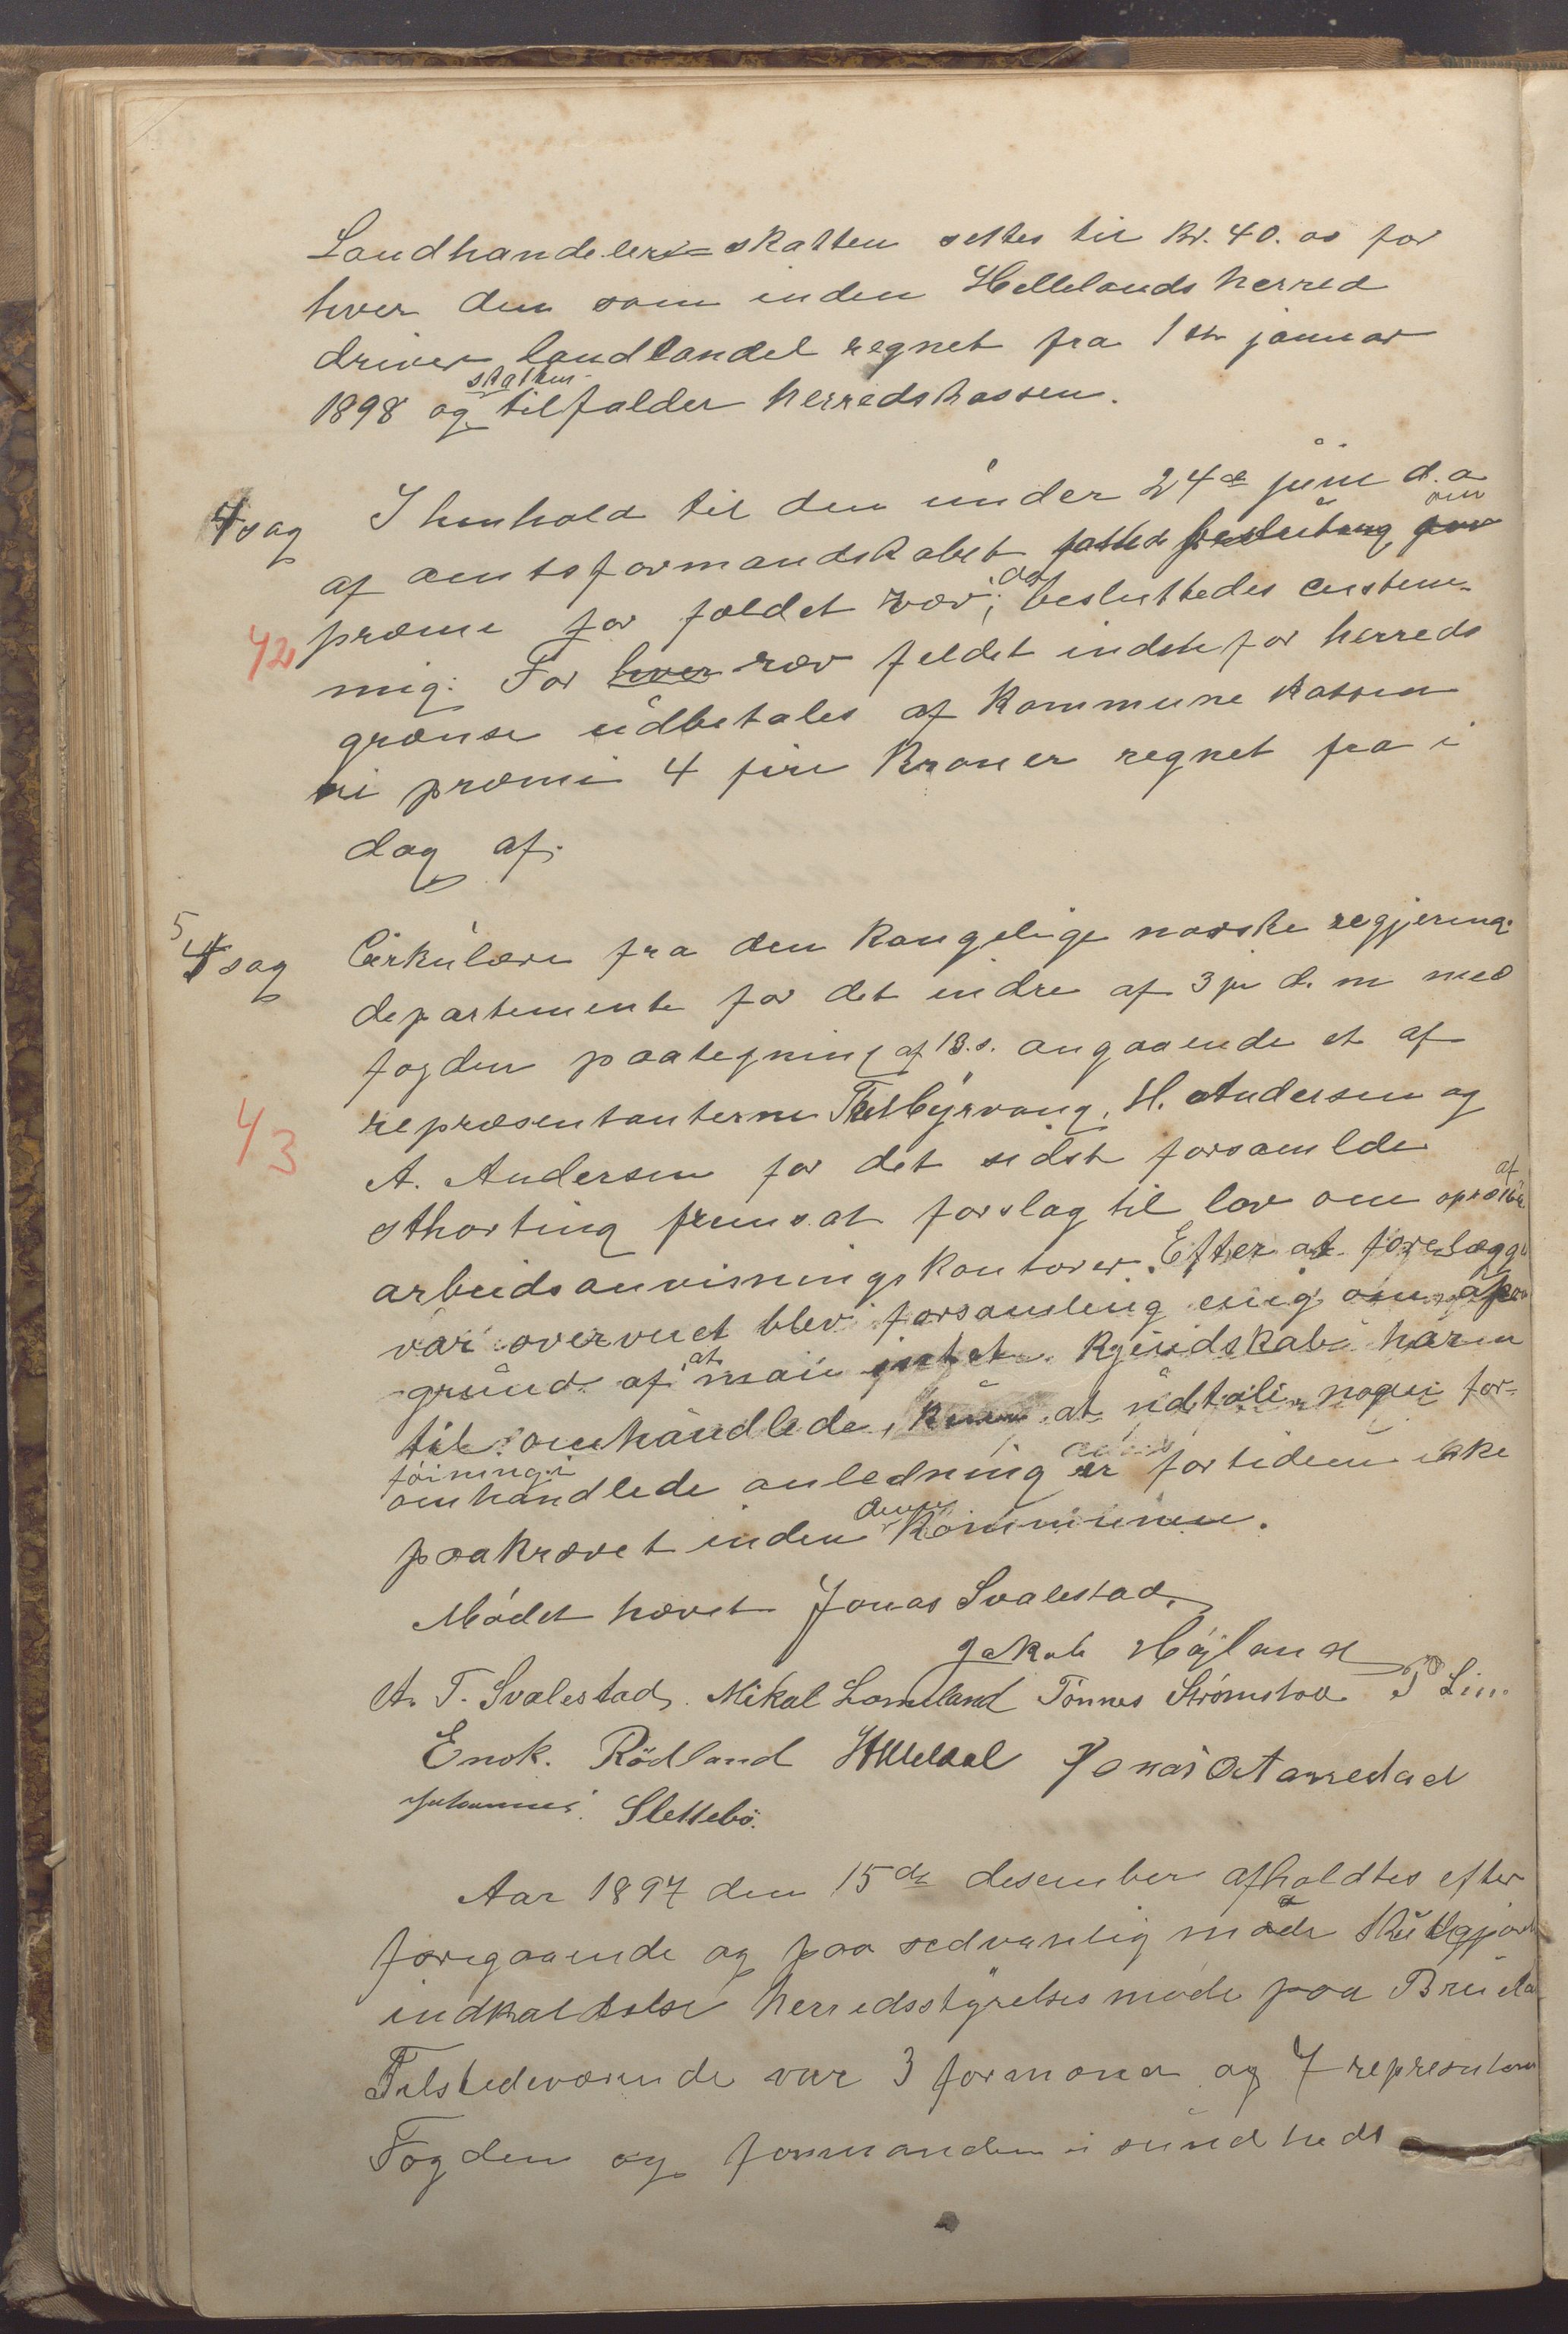 Landhandeler=skatten settes til Kr. 40.00 for
hver den som inden Hellelands herred
driver landlandel regnet fra 1ste januar
skatten
1898 og tilfalder herredskassen.
4 sag I henhold til den under 24de juni d.a
af amtsformandskabet fatted beslutning om
præmi for fældet ræv; besluttedes enstem-
42
mig: For hver ræv feldet indenfor herreds
grænse udbetales af Kommune kassen
i præmi 4 fire Kroner regnet fra i
dag af.
5 sag Cirkulære fra den Kongelige norske regjering
departemente for det indre af 3je d. m med
fogden paategning af 13. s. angaaende et af
repræsentanterne Thetbyrvang, H. Andersen og
43
A. Andersen for det sidst forsamlde
sthorting fremsat forslag til lov om af
arbeidsanvisningskontorer. Efter at forelægg
var overveiet blev forsamling enig om
grund af at man intet kjendskab harm
til omhandlede, at udtale nogen for-
føining i
omhandlede anledning er fortiden ikke
paakrævet inden denne Kommunen.
Mødet hævet Jonas Svalestad.
Jakob Høyland
A. T. Svalestad. Mikal Lomeland Tønnes Strømstad P
Enok. Rödland Jonas
Johannes Slettebö.
Aar 1897 den 15de desember afholdtes efter
foregaaende og paa sedvanlig maade
indkaldelse herredsstyrelses møde paa
Tilstedeværende var 3 formænd og 7 represntan
Fogden og formanden i sundheds